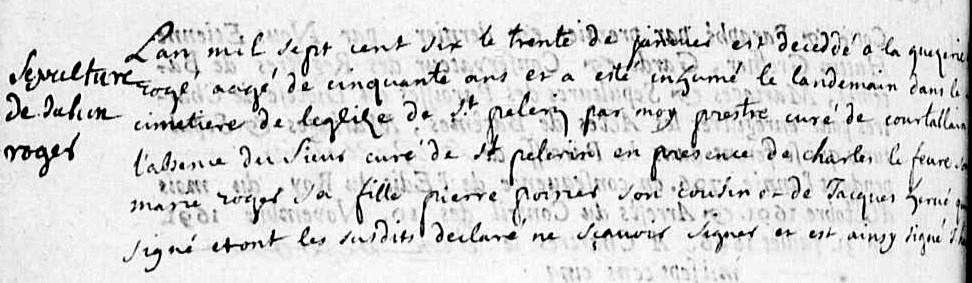 Sepulture
de
roger
L'an mil sept cent six le trente de janvier est deceddé a la
rogé aagé de cinquante ans et a esté inhumé le landemain dans le
cimetiere de leglize de St pelerin par moy prestre curé de courtallain
l'absence du sieur curé de St pelerin en presence de charles le feure
marie roger sa fille pierre poirier son cousin & de Jacques hervé
signé et ont les susdits declaré ne sçavoir signer et est ainsy signé